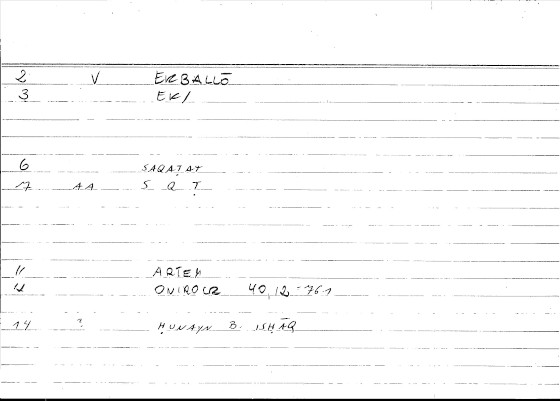 2 V EKBALLŌ
3 EK/
6 SAQAṬAT
17 AA S Q Ṭ
11 ARTEM
12 ONIROCR 40,12-761
14 ? ḤUNAYN B. ISḤĀQ